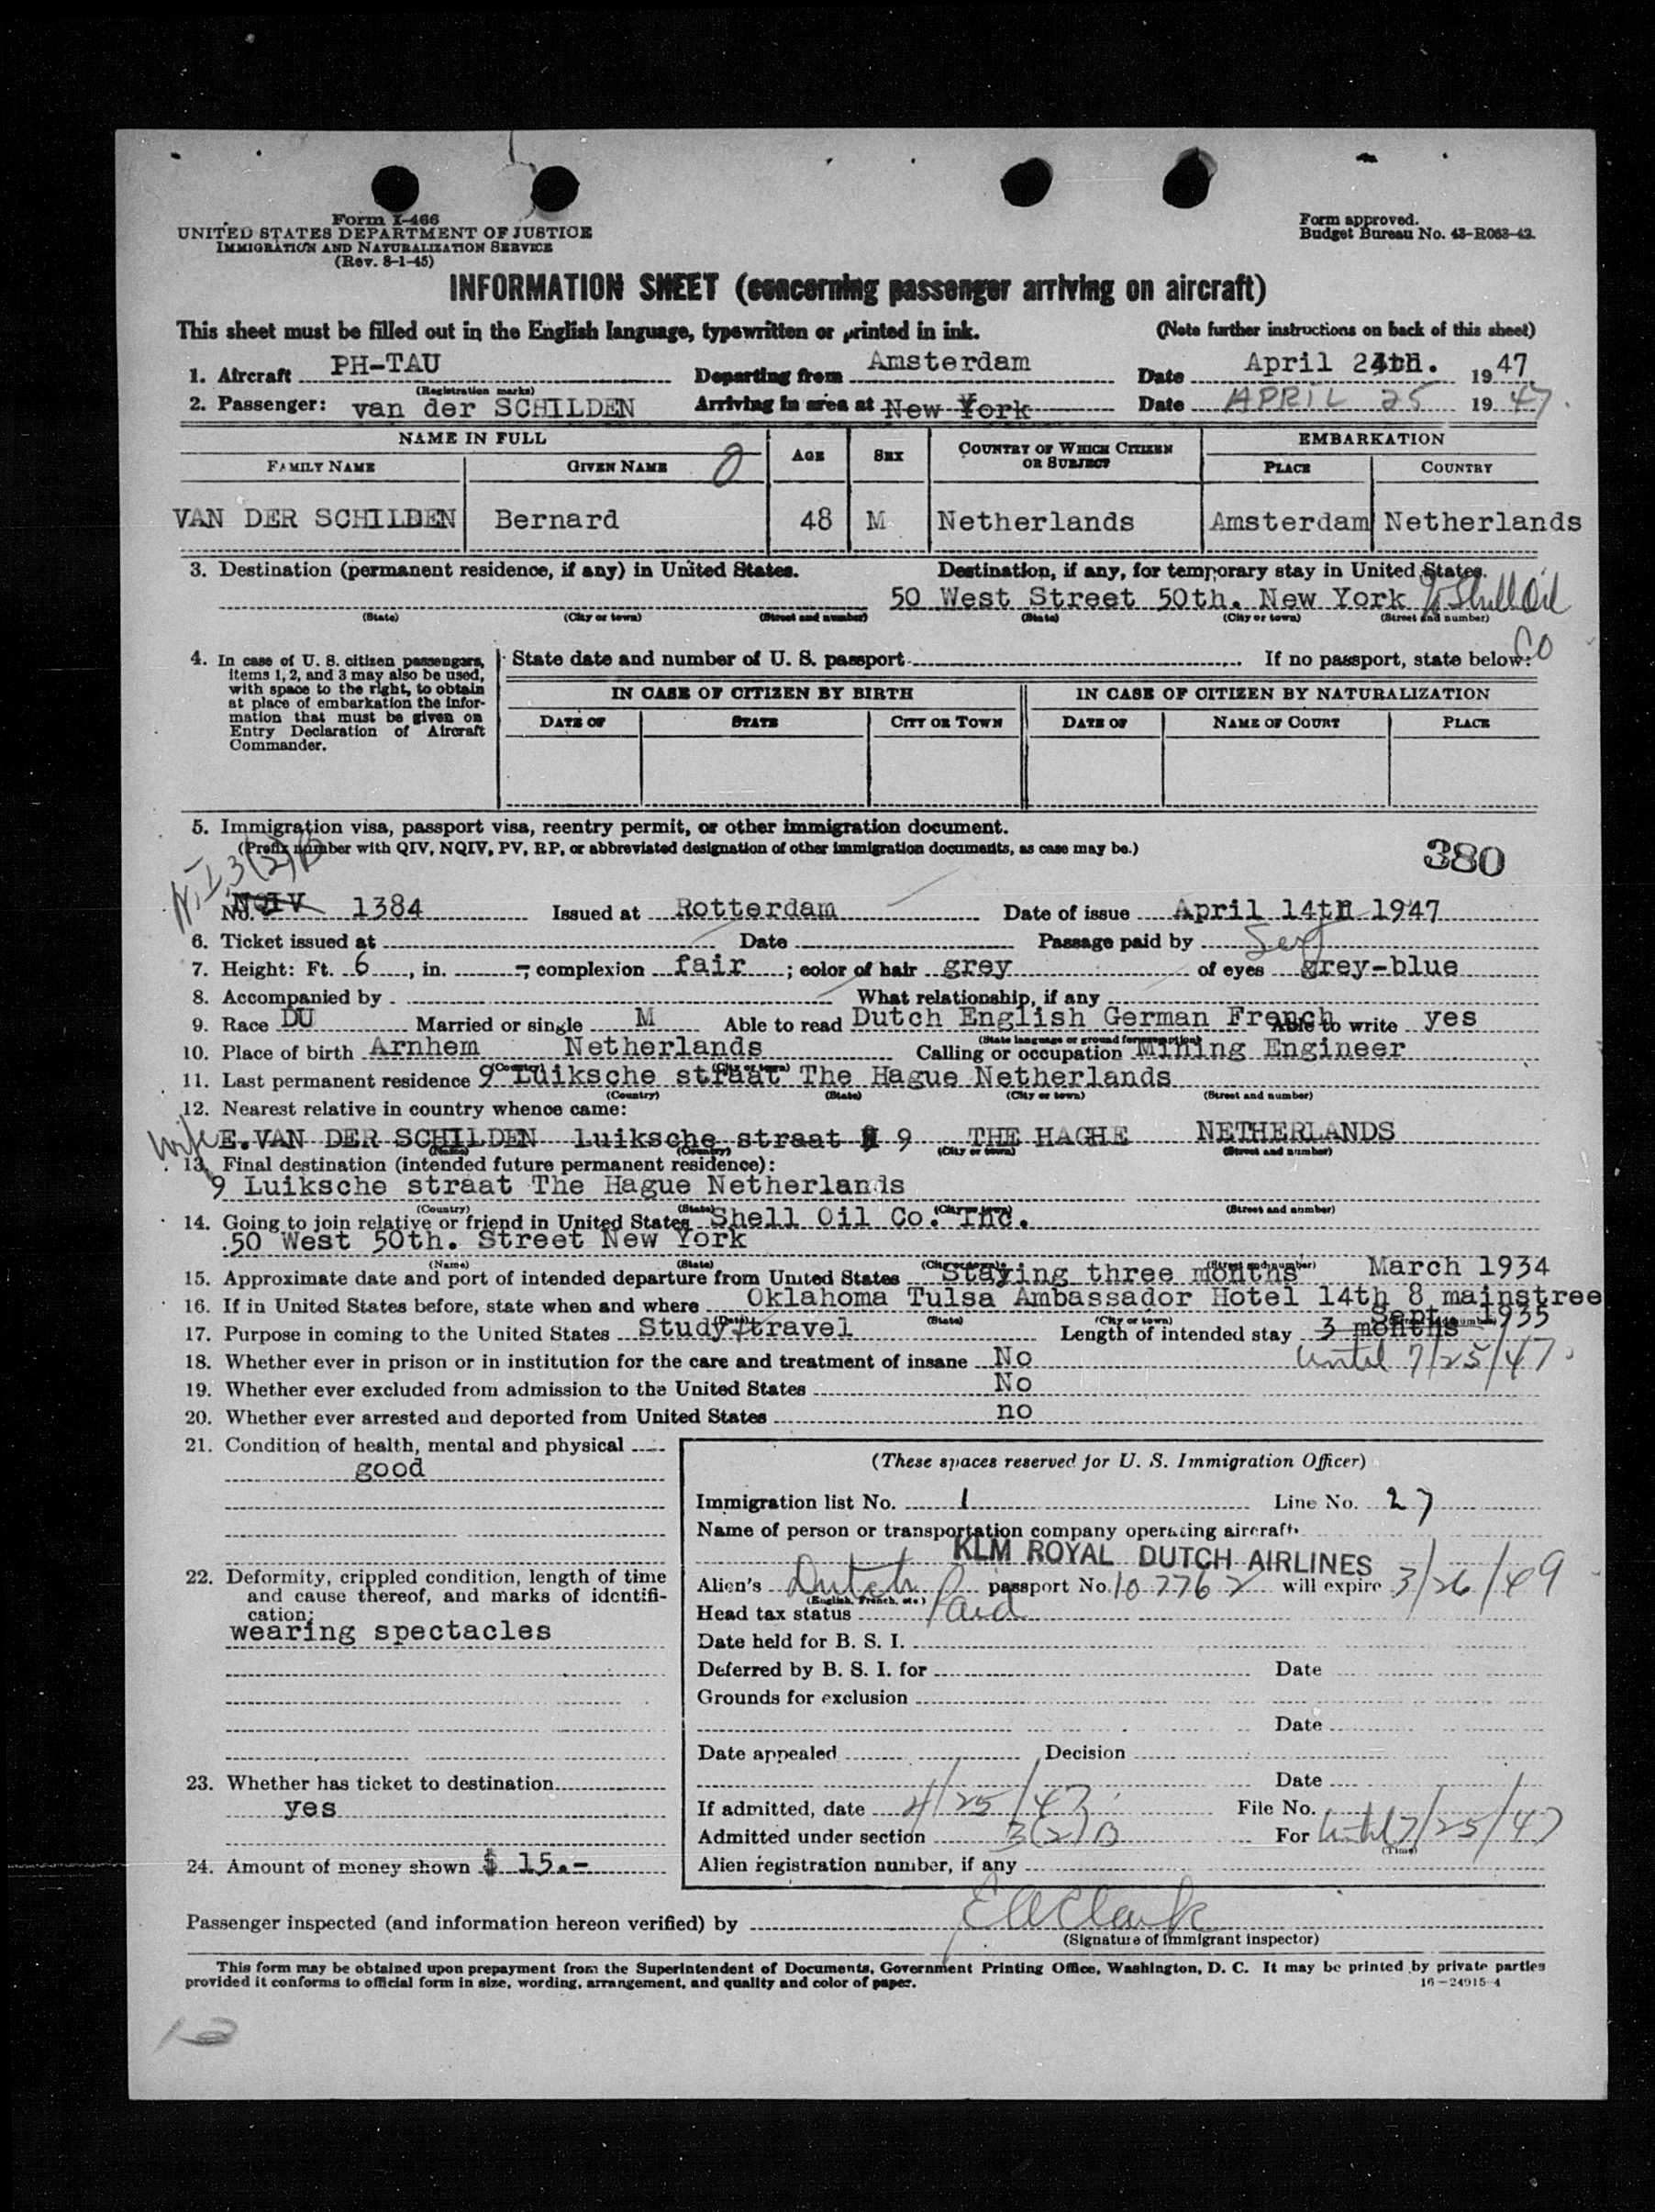 Form I-466
UNITED STATES DEPARTMENT OF JUSTICE
IMMIGRATION AND NATURALIZATION SERVICE
(Rev. 8-1-45)
Form approved.
Budget Bureau No. 43-R063-42.
INFORMATION SHEET (concerning passenger arriving on aircraft)
This sheet must be filled out in the English language, typewritten or printed in ink. (Note further instructions on back of this sheet)
1. Aircraft PH-TAU Departing from Amsterdam Date April 24th. 1947
(Registration marks)
2. Passenger: van der SCHILDEN Arriving in area at New York Date APRIL 25 1947.
NAME IN FULL AGE SEX COUNTRY OF WHICH CITIZEN OR SUBJECT EMBARKATION
FAMILY NAME GIVEN NAME PLACE COUNTRY
VAN DER SCHILDEN Bernard 48 M Netherlands Amsterdam Netherlands
3. Destination (permanent residence, if any) in United States. Destination, if any, for temporary stay in United States.
50 West Street 50th. New York % Shell Oil Co
(State) (City or town) (Street and number) (State) (City or town) (Street and number)
4. In case of U. S. citizen passengers, items 1, 2, and 3 may also be used, with space to the right, to obtain at place of embarkation the information that must be given on Entry Declaration of Aircraft Commander.
State date and number of U. S. passport If no passport, state below:
IN CASE OF CITIZEN BY BIRTH IN CASE OF CITIZEN BY NATURALIZATION
DATE OF STATE CITY OR TOWN DATE OF NAME OF COURT PLACE
5. Immigration visa, passport visa, reentry permit, or other immigration document.
(Prefix number with QIV, NQIV, PV, RP, or abbreviated designation of other immigration documents, as case may be.)
380
N.I. 3(2)B
No. NQIV 1384 Issued at Rotterdam Date of issue April 14th 1947
6. Ticket issued at Date Passage paid by Self
7. Height: Ft. 6, in. -; complexion fair; color of hair grey of eyes grey-blue
8. Accompanied by What relationship, if any
9. Race DU Married or single M Able to read Dutch English German French Able to write yes
(State language or ground for exemption)
10. Place of birth Arnhem Netherlands Calling or occupation Mining Engineer
(Country) (City or town)
11. Last permanent residence 9 Luiksche straat The Hague Netherlands
(Country) (State) (City or town) (Street and number)
12. Nearest relative in country whence came:
wife E. VAN DER SCHILDEN luiksche straat 9 THE HAGHE NETHERLANDS
(Name) (Country) (City or town) (Street and number)
13. Final destination (intended future permanent residence):
9 Luiksche straat The Hague Netherlands
(Country) (State) (City or town) (Street and number)
14. Going to join relative or friend in United States Shell Oil Co. Inc.
50 West 50th. Street New York
(Name) (State) (City or town) (Street and number)
15. Approximate date and port of intended departure from United States Staying three months March 1934
16. If in United States before, state when and where Oklahoma Tulsa Ambassador Hotel 14th 8 mainstree
(Date) (State) (City or town) Sept. 1935
17. Purpose in coming to the United States Study+travel Length of intended stay 3 months
18. Whether ever in prison or in institution for the care and treatment of insane No until 7/25/47
19. Whether ever excluded from admission to the United States No
20. Whether ever arrested and deported from United States no
21. Condition of health, mental and physical
good
22. Deformity, crippled condition, length of time and cause thereof, and marks of identification:
wearing spectacles
23. Whether has ticket to destination
yes
24. Amount of money shown $ 15.-
(These spaces reserved for U. S. Immigration Officer)
Immigration list No. 1 Line No. 27
Name of person or transportation company operating aircraft
KLM ROYAL DUTCH AIRLINES
Alien's Dutch passport No. 107762 will expire 3/26/49
(English, French, etc.)
Head tax status Paid
Date held for B. S. I.
Deferred by B. S. I. for Date
Grounds for exclusion
Date
Date appealed Decision
Date
If admitted, date 4/25/47 File No.
Admitted under section 3(2)B For Until 7/25/47
(Time)
Alien registration number, if any
Passenger inspected (and information hereon verified) by E A Clark
(Signature of immigrant inspector)
This form may be obtained upon prepayment from the Superintendent of Documents, Government Printing Office, Washington, D. C. It may be printed by private parties
provided it conforms to official form in size, wording, arrangement, and quality and color of paper.
16-24915-4